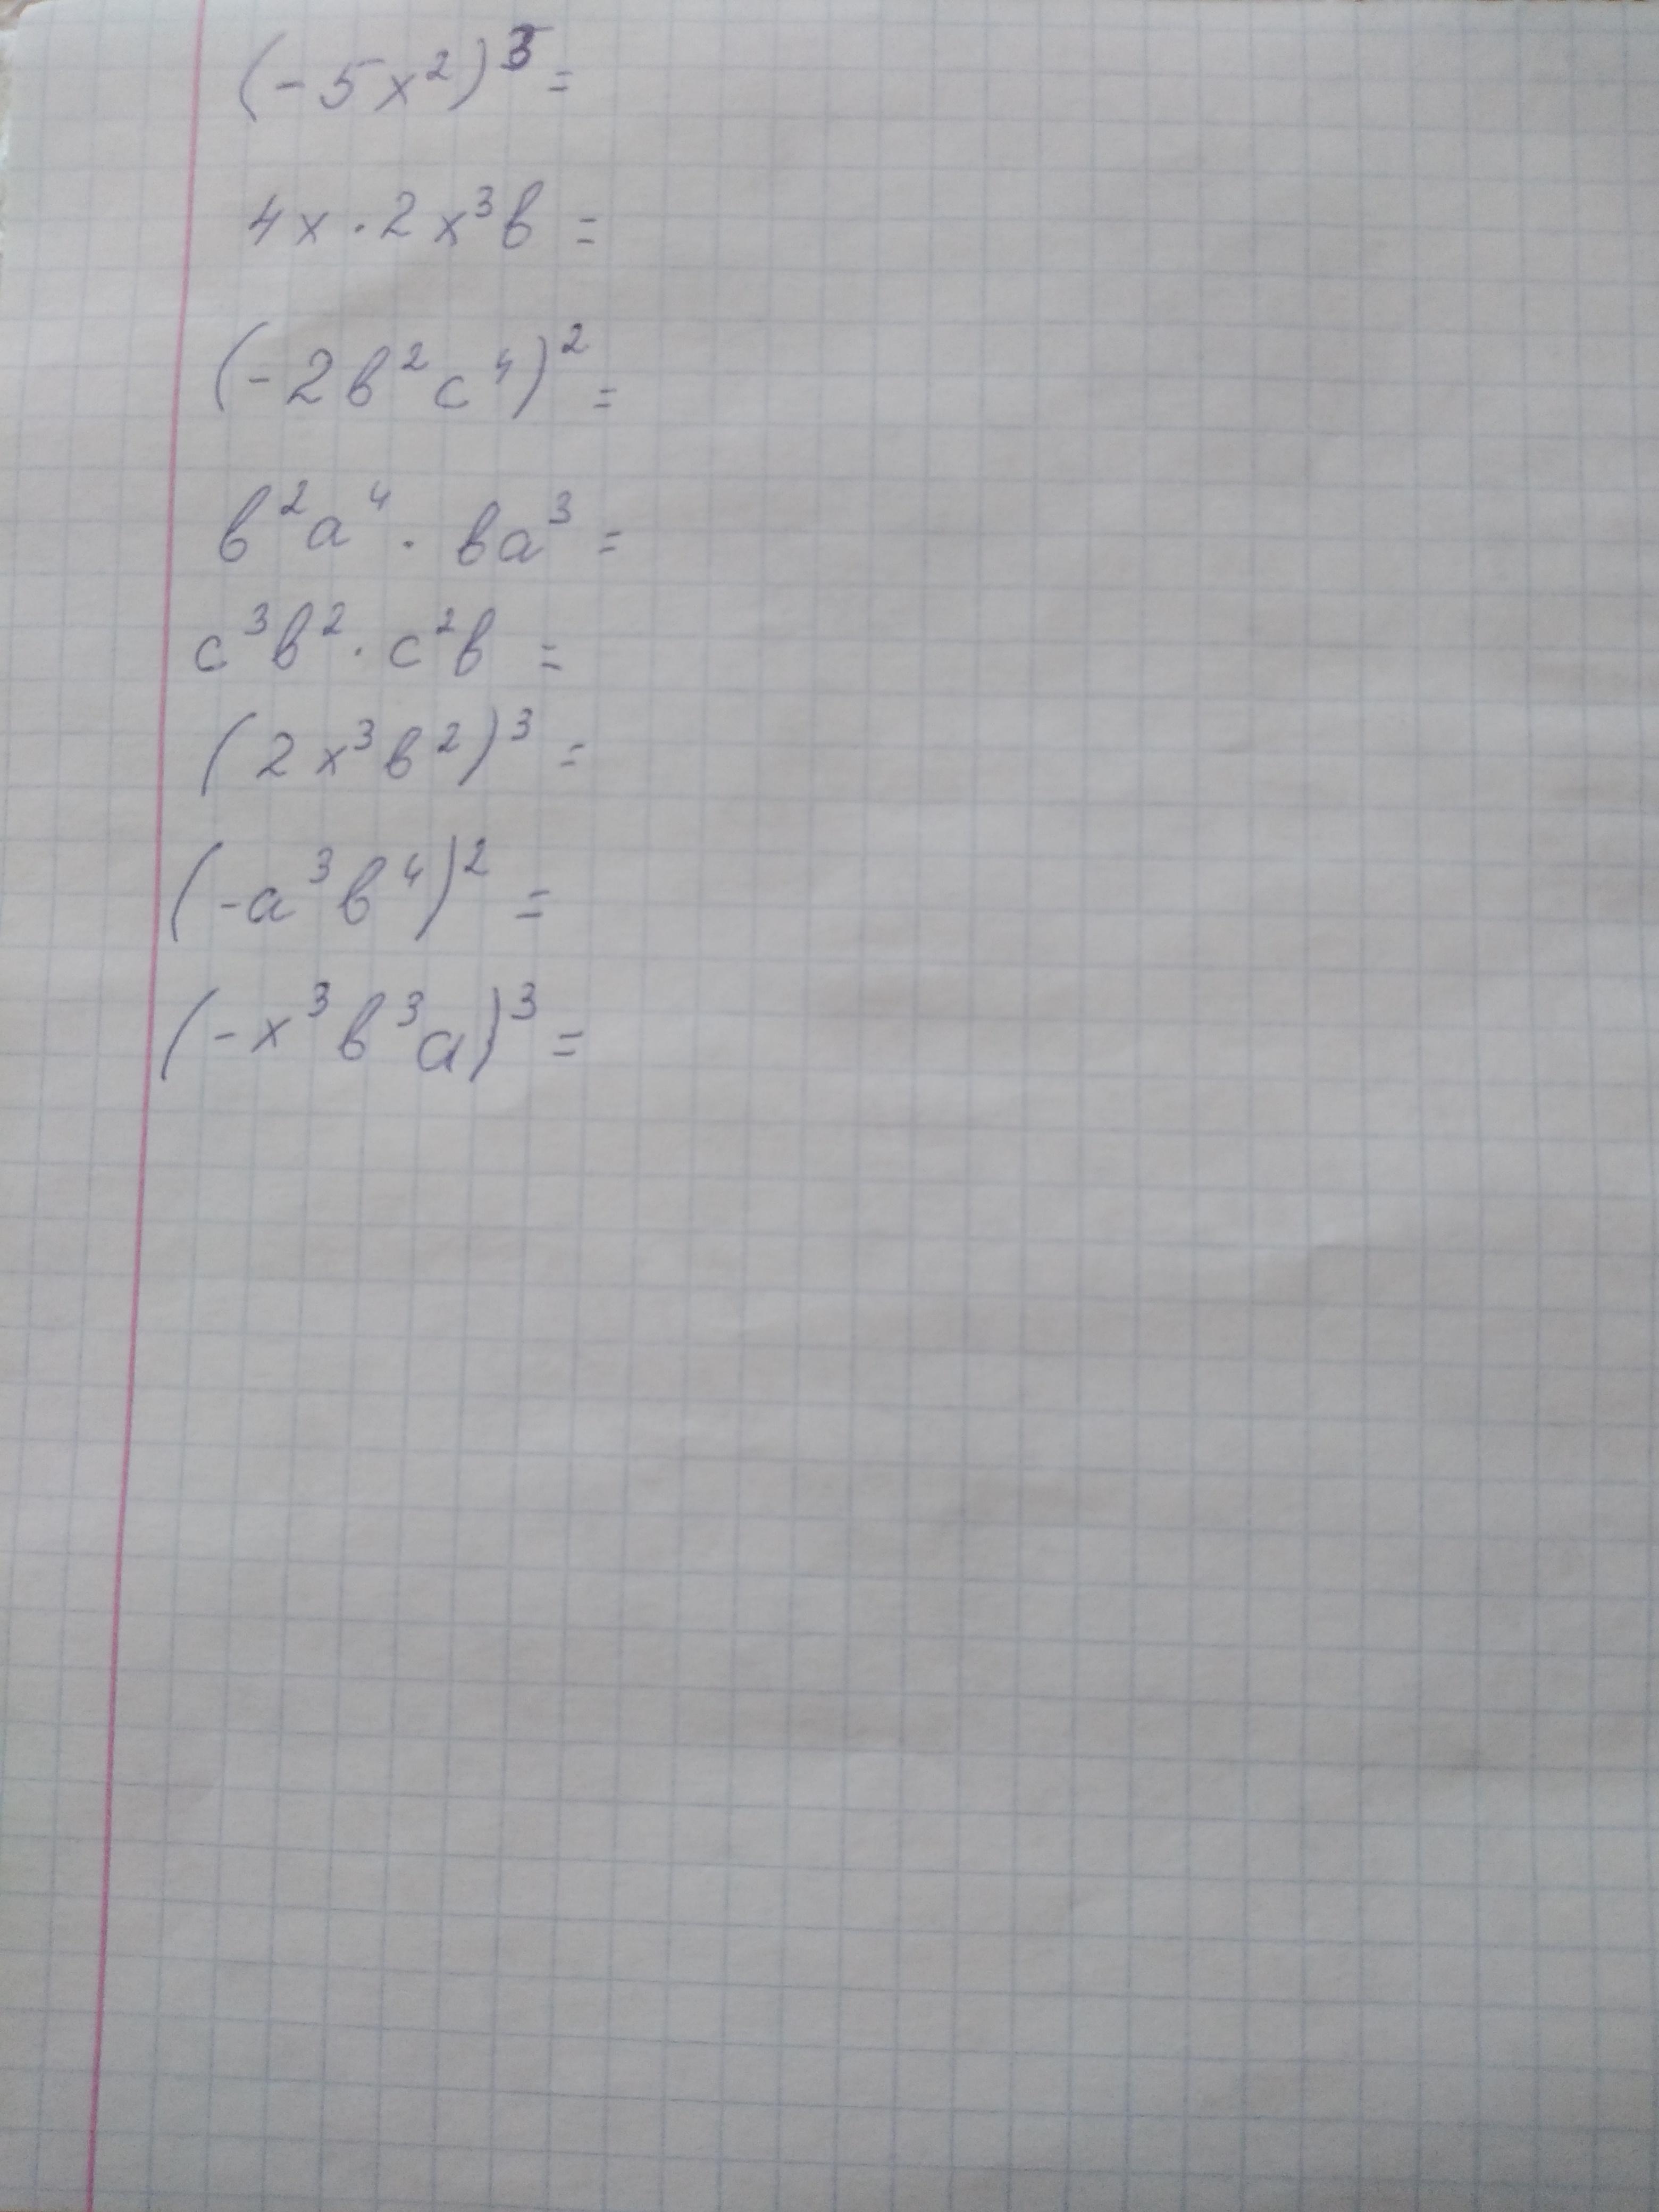 (-5x²)³=
4x·2x³b=
(-2b²c⁴)²=
b²a⁴·ba³=
c³b²·c²b=
(2x³b²)³=
(-a³b⁴)²=
(-x³b³a)³=